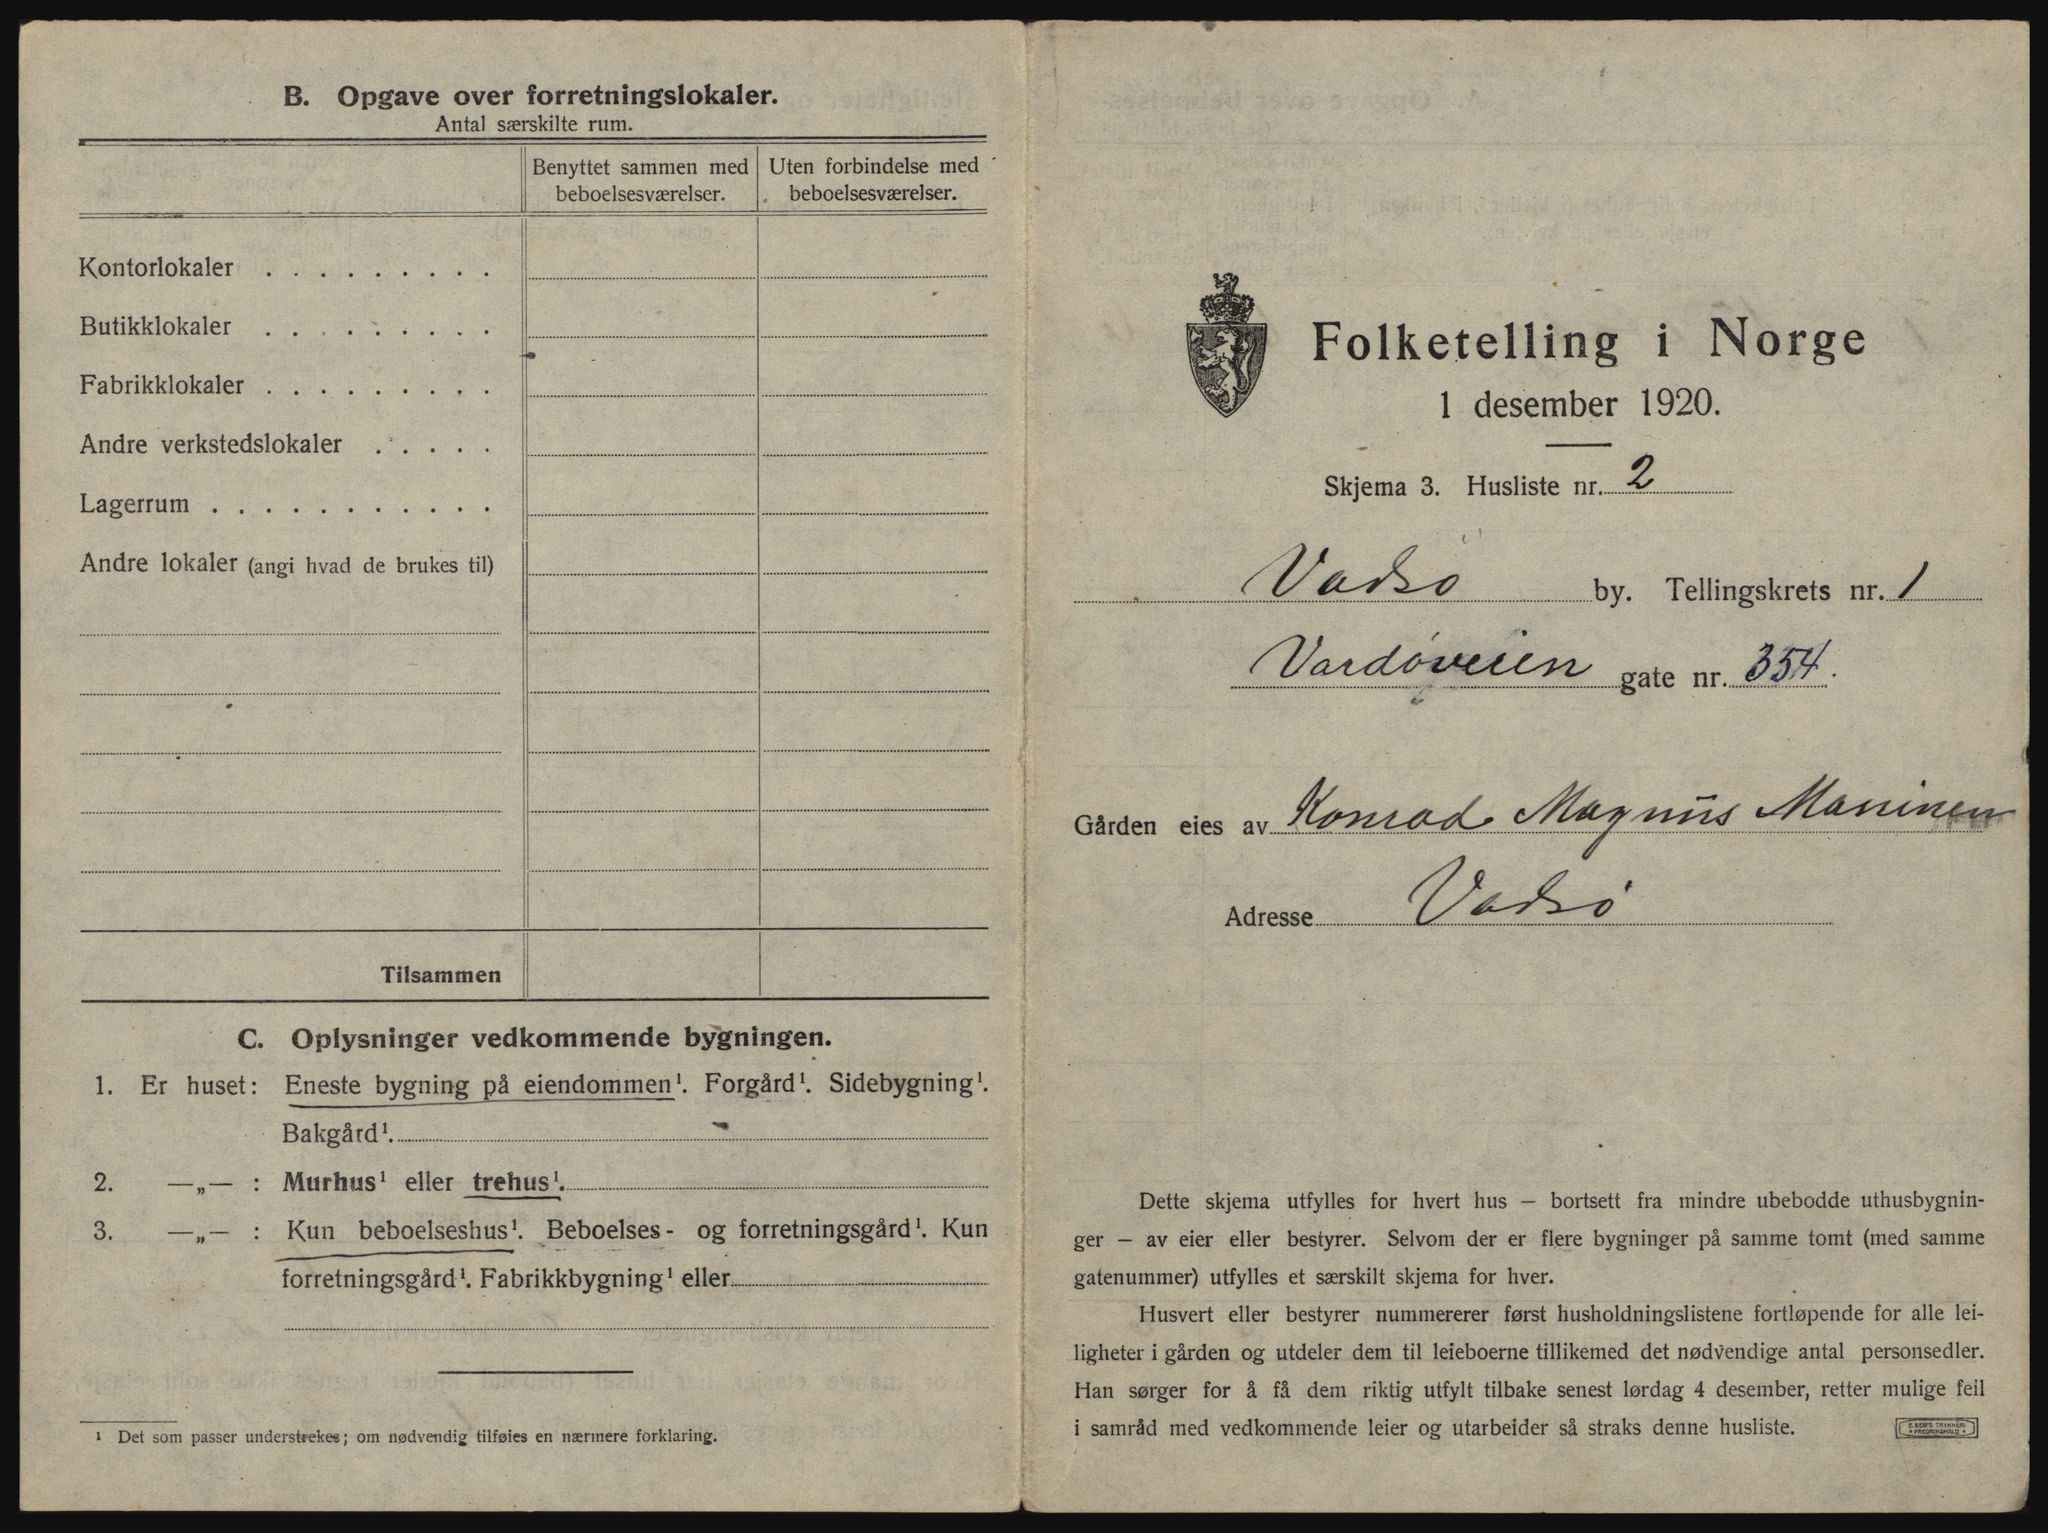 B. Opgave over forretningslokaler.
Antal særskilte rum.
Benyttet sammen med beboelsesværelser.
Uten forbindelse med beboelsesværelser.
Kontorlokaler . . . . . . . . .
Butikklokaler . . . . . . . . .
Fabrikklokaler . . . . . . . . .
Andre verkstedslokaler . . . . .
Lagerrum . . . . . . . . . . .
Andre lokaler (angi hvad de brukes til)
Tilsammen
C. Oplysninger vedkommende bygningen.
1. Er huset: Eneste bygning på eiendommen¹. Forgård¹. Sidebygning¹.
Bakgård¹.
2. —„— : Murhus¹ eller trehus¹.
3. —„— : Kun beboelseshus¹. Beboelses- og forretningsgård¹. Kun
forretningsgård¹. Fabrikkbygning¹ eller
¹ Det som passer understrekes; om nødvendig tilføies en nærmere forklaring.
Folketelling i Norge
1 desember 1920.
Skjema 3. Husliste nr. 2
Vadsö by. Tellingskrets nr. 1
Vardöveien gate nr. 354.
Gården eies av Konrad Magnus Maninen
Adresse Vadsö
Dette skjema utfylles for hvert hus — bortsett fra mindre ubebodde uthusbygnin-
ger — av eier eller bestyrer. Selvom der er flere bygninger på samme tomt (med samme
gatenummer) utfylles et særskilt skjema for hver.
Husvert eller bestyrer nummererer først husholdningslistene fortløpende for alle lei-
ligheter i gården og utdeler dem til leieboerne tillikemed det nødvendige antal personsedler.
Han sørger for å få dem riktig utfylt tilbake senest lørdag 4 desember, retter mulige feil
i samråd med vedkommende leier og utarbeider så straks denne husliste.
E. SEM'S TRYKKERI
FREDRIKSHALD